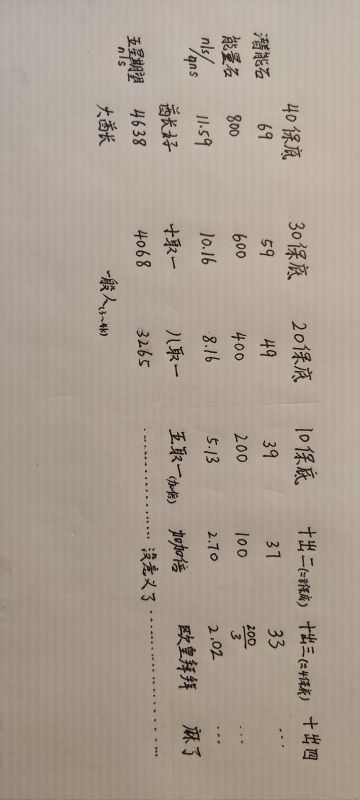 40保底 30保底 20保底 10保底 十出二(≈8保底) 十出三(≈4保底) 十出四
潜能石 69 59 49 39 37 33 ...
能量石 800 600 400 200 100 200/3 ...
nls/qns 11.59 10.16 8.16 5.13 2.70 2.02 ...
酋长好 十取一 八取一 五取一(加倍) 加加倍 欧皇 麻了
五星期望nls 4638 4068 3265 ............ 没意义了 ............
大酋长 一般人(3~4k)